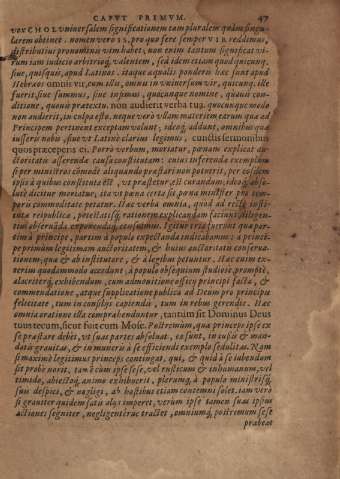 CAPVT PRIMVM. 47
VECHOL vniuersalem significationem tam pluralem quàm singu-
larem obtinet. nomen verò 11, pro quo fere semper VIR reddimus,
distributiui pronominis vim habet, non enim tantùm significat vi-
rum tam iudicio arbitrioq́; valentem, sed idem etiam quod quicunq;
siue, quisquis, apud Latinos. itaque aequalis ponderis haec sunt apud
Hebraeos omnis vir, cum illis, omnis in vniuersum vir, quicunq; ille
fuerit, siue summus, siue infimus, quocunque nomine, quauis con-
ditione, quouis praetextu. non audierit verba tua, quocunque modo
non audierit, in culpa esto. neque vero vllam materiem rerum quae ad
Principem pertinent exceptam volunt; ideoq; addunt, omnibus quae
iusseris nobis, siue vt Latinè clarius legimus, cunctis sermonibus
quos praeceperis ei. Porrò verbum, moriatur, poenam explicat au-
ctoritatis asserendae causa constitutam: cuius inferendae exemplum
si per ministros commodè aliquando praestari non poterit, per eosdem
ipsos à quibus constituta est, vt praestetur, est curandum; ideoq; abso-
lutè dicitur moriatur, ita vt poena certa sit, poenae minister pro tem-
poris commoditate petatur. Haec verba omnia, quod ad rectè insti-
tuta reipublicae, potestatisq; rationem explicandam faciunt, diligen-
tius obseruãda exponendaq; censuimus. Igitur tria seruiri quae par-
tim à principe, partim à populo expectanda indicabamus: à princi-
pe primùm legitimam auctoritatem, & huius auctoritatis conserua-
tionem; quae & ab institutore, & à legibus petuntur. Haec enim ex-
terium quodammodo accedunt, à populo obsequium studiosè, promptè,
alacriterq́; exhibendum, cum admonitione officij principi facta, &
commendatione, atque supplicatione publica ad Deum pro principis
felicitate, tum in consilijs capiendis, tum in rebus gerendis. Haec
omnia oratione illa comprehenduntur, tantùm sit Dominus Deus
tuus tecum, sicut fuit cum Mose. Postremùm, quae princeps ipse ex
se praestare debet, vt suas partes absoluat, ea sunt, in iussis & man-
datis grauitas, & in muneris à se efficiendi exemplo sedulitas. Nam
si maximè legitimus princeps contingat, qui, & quid à se iubendum
sit probè norit, tamẽ cùm ipse sese, vel rusticum & inhumanum, vel
timido, abiectoq́; animo exhibuerit, plerumq; à populi ministrisq́;
suis despici, & negligi, ab hostibus etiam contemni solet. iam verò
si grauiter quidem satis alijs imperet, verùm ipse tamen suas ipsius
actiones segniter, negligenterue tractet, omniumq́; postremum sese
praebeat